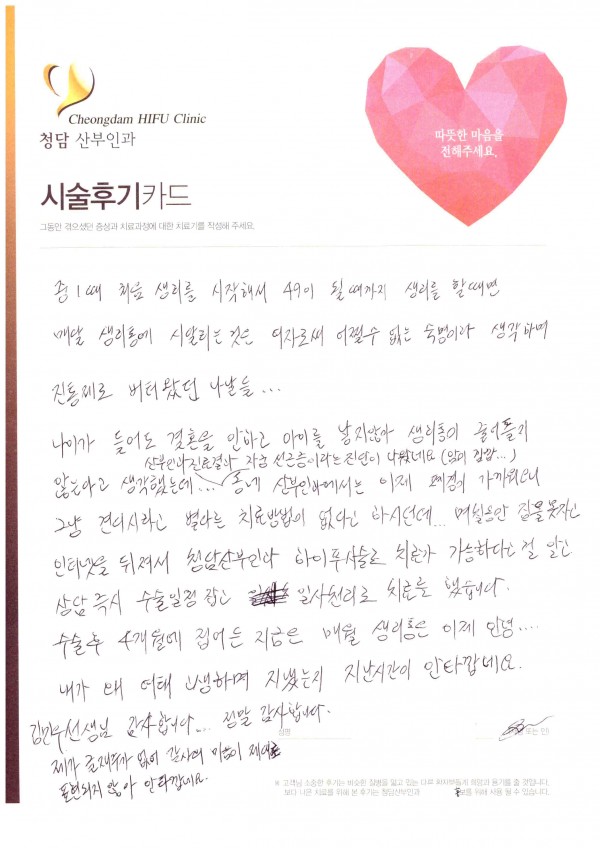 Cheongdam HIFU Clinic
청담 산부인과
따뜻한 마음을
전해주세요.
시술후기카드
그동안 겪으셨던 증상과 치료과정에 대한 치료기를 작성해 주세요.
중1때 처음 생리를 시작해서 49이 될때까지 생리를 할때면
매달 생리통에 시달리는것은 여자로써 어쩔수 없는 숙명이라 생각하며
진통제로 버텨왔던 나날들...
나이가 들어도 결혼을 안하고 아이를 낳지않아 생리통이 줄어들지
산부인과진료결과 자궁 선근증이라는진단이 나왔네요
않는다고 생각했는데... 동네 산부인과에서는 이제 폐경이 가까워오니
그냥 견디시라고 별다른 치료방법이 없다고 하시던데... 며칠동안 잠을못자고
인터넷을 뒤져서 청담산부인과 하이푸시술로 치료가 가능하다는걸 알고
상담 즉시 수술일정 잡고 일사천리로 치료를 했습니다.
수술후 4개월에 접어든 지금은 매월 생리통은 이제 안녕....
내가 왜 여태 고생하며 지냈는지 지난시간이 안타깝네요.
김민우선생님 감사합니다... 정말 감사합니다.
제가 글재주가 없어 감사의 마음이 제대로
표현되지 않아 안타깝네요.
성명
또는 인)
※ 고객님 소중한 후기는 비슷한 질병을 앓고 있는 다른 환자분들께 희망과 용기를 줄 것입니다.
보다 나은 치료를 위해 본 후기는 청담산부인과 보를 위해 사용 될 수 있습니다.